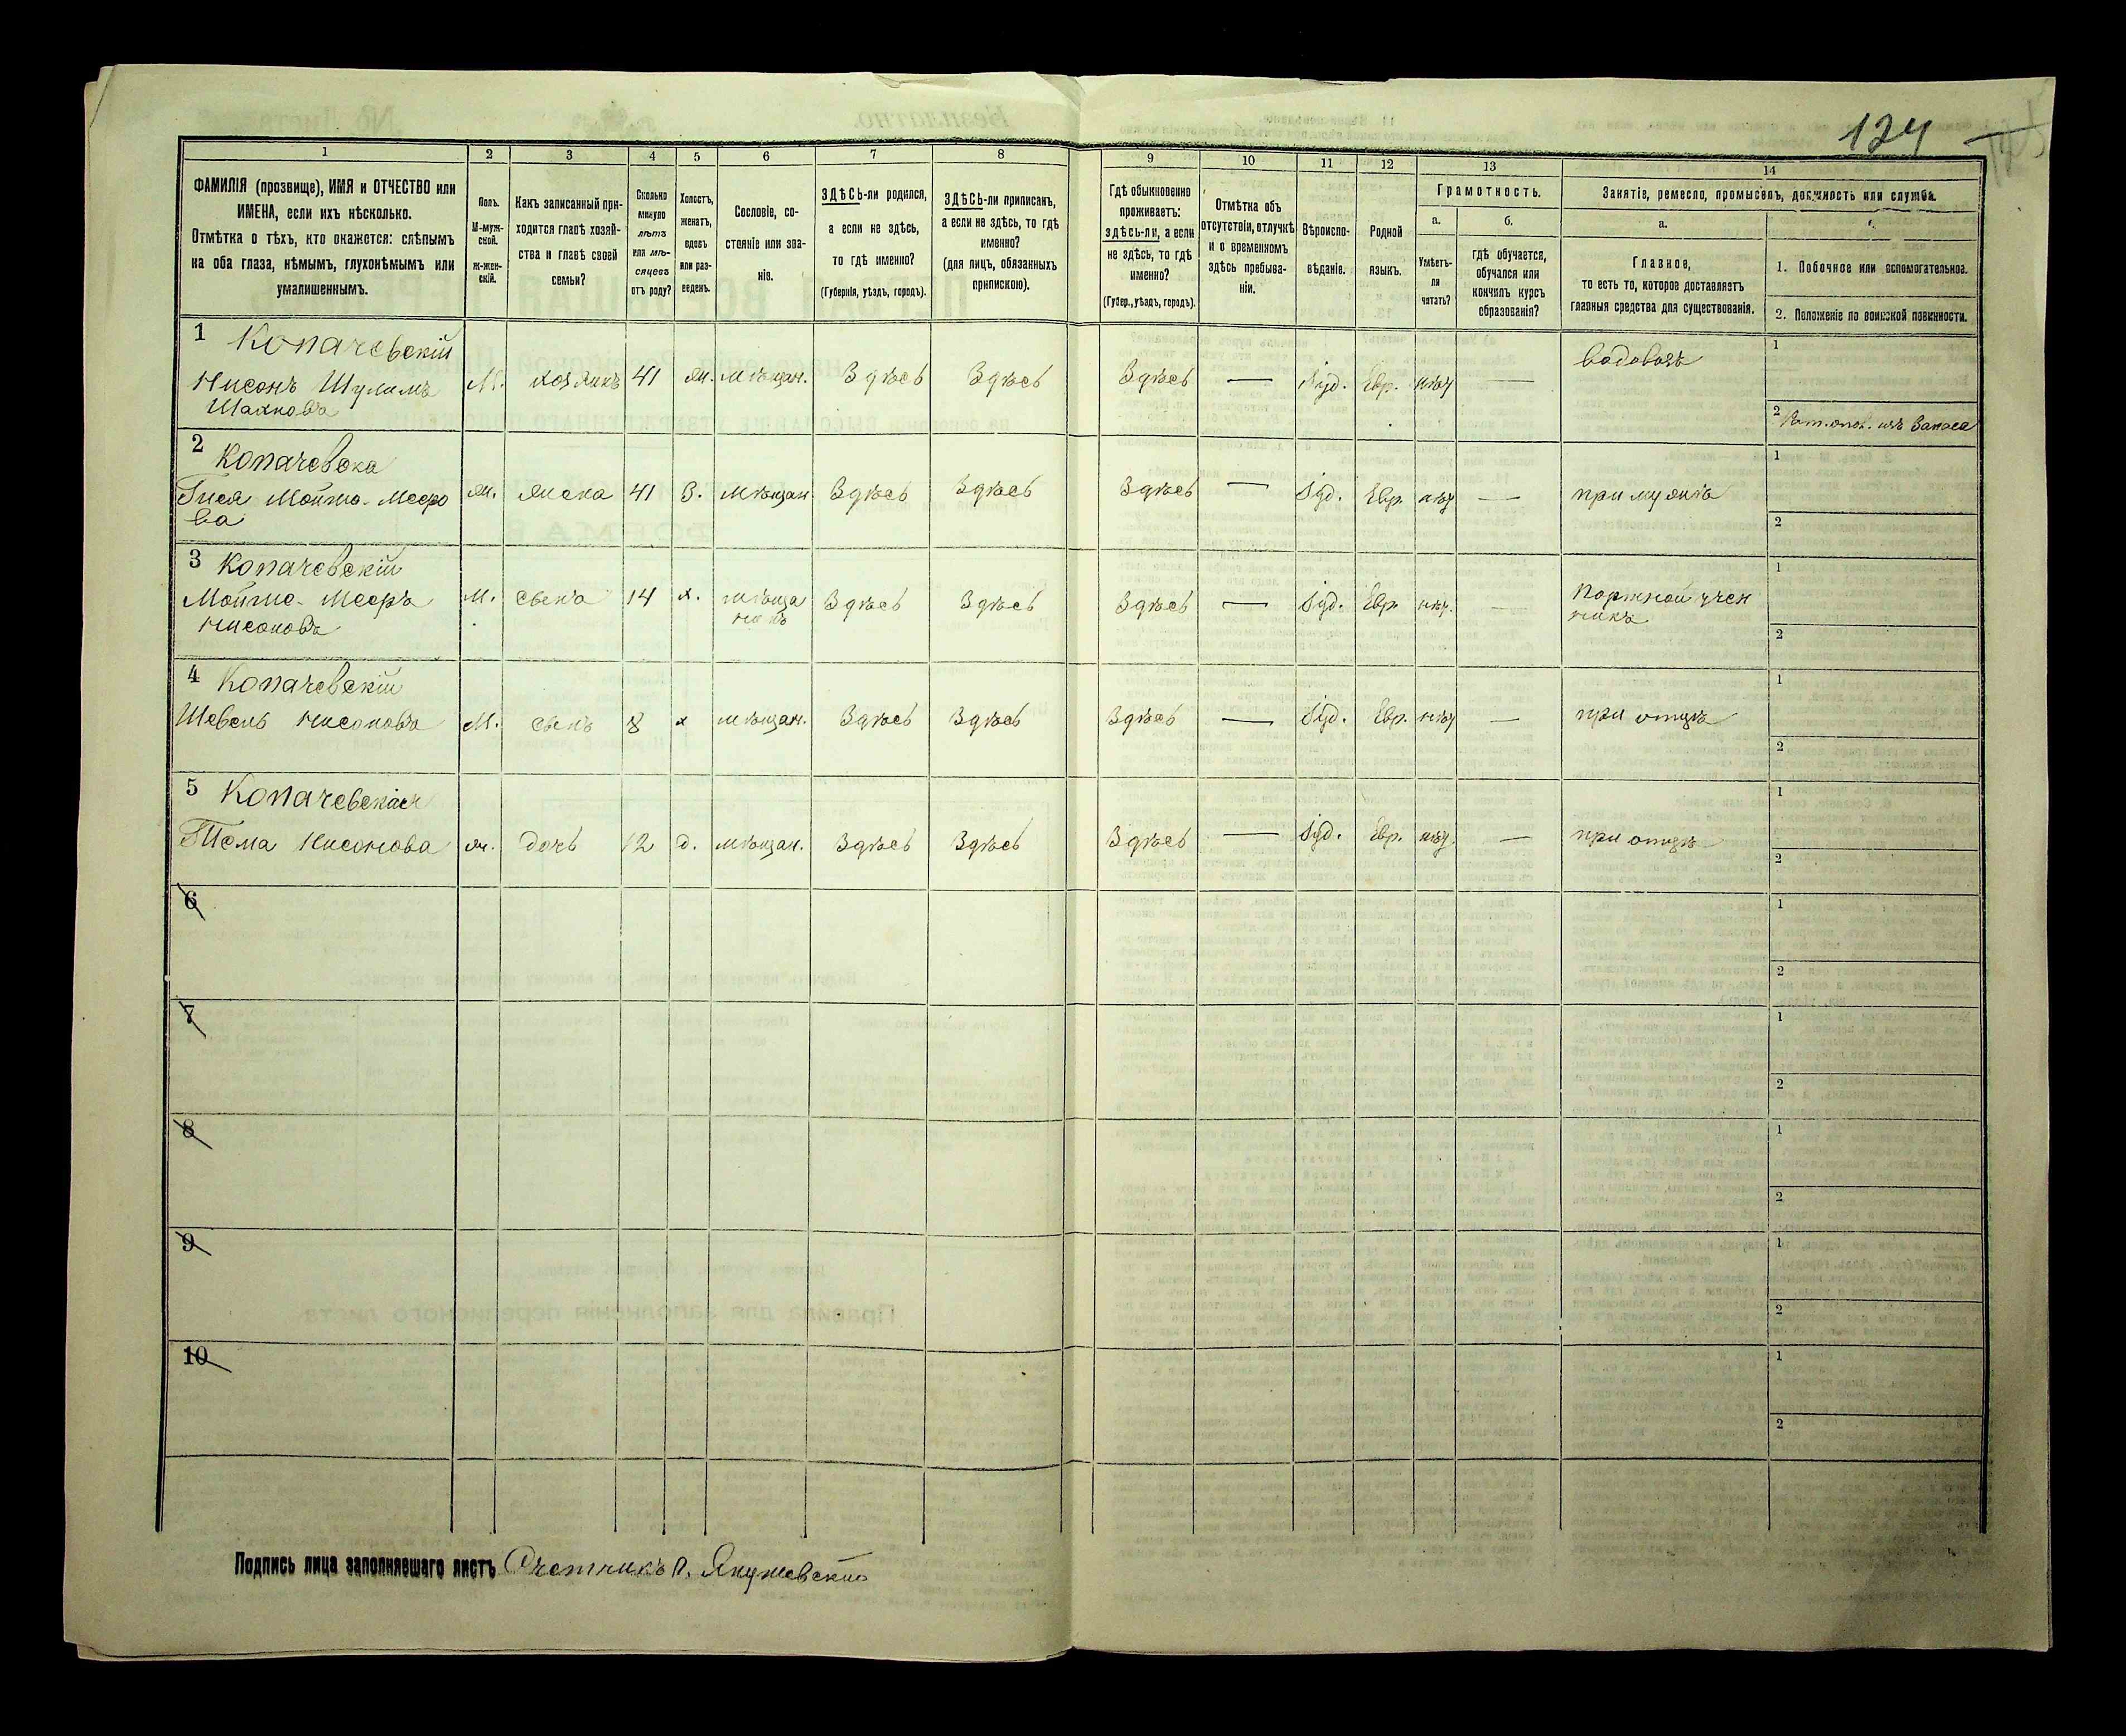 124
1
2
3
4
5
6
7
8
9
10
11
12
13
14
ФАМИЛІЯ (прозвище), ИМЯ и ОТЧЕСТВО или
ИМЕНА, если ихъ нѣсколько.
Отмѣтка о тѣхъ, кто окажется: слѣпымъ
на оба глаза, нѣмымъ, глухонѣмымъ или
умалишеннымъ.
Полъ.
М-муж-
ской.
Ж-жен-
скій.
Какъ записанный при-
ходится главѣ хозяй-
ства и главѣ своей
семьи?
Сколько
минуло
лѣтъ
или мѣ-
сяцевъ
отъ роду?
Холостъ,
женатъ,
вдовъ
или раз-
веденъ.
Сословіе, со-
стояніе или зва-
ніе.
ЗДѢСЬ-ли родился,
а если не здѣсь,
то гдѣ именно?
(Губернія, уѣздъ, городъ).
ЗДѢСЬ-ли приписанъ,
а если не здѣсь, то гдѣ
именно?
(для лицъ, обязанныхъ
припискою).
Гдѣ обыкновенно
проживаетъ:
здѣсь-ли, а если
не здѣсь, то гдѣ
именно?
(Губер., уѣздъ, городъ).
Отмѣтка объ
отсутствіи, отлучкѣ
и о временномъ
здѣсь пребыва-
ніи.
Вѣроиспо-
вѣданіе.
Родной
языкъ.
Грамотность.
а.
Умѣетъ-
ли
читать?
б.
гдѣ обучается,
обучался или
кончилъ курсъ
образованія?
Занятіе, ремесло, промыселъ, должность или служба.
а.
Главное,
то есть то, которое доставляетъ
главныя средства для существованія.
1. Побочное или вспомогательное.
2. Положеніе по воинской повинности.
1 Копачевскій
Нисонъ Шулимъ
Шахновъ
М. хозяинъ 41 ж. мѣщан. Здѣсь Здѣсь Здѣсь — Іуд. Евр. нѣт — водовозъ
1
2 Рат. опол. изъ Запаса
2 Копачевска
Гися Мойше-Меero
ва
ж. жена 41 З. мѣщан. Здѣсь Здѣсь Здѣсь — Іуд. Евр. нѣт — при мужѣ
1
2
3 Копачевскій
Мойше-Меeръ
Нисоновъ
М. сынъ 14 х. мѣща
нинъ
Здѣсь Здѣсь Здѣсь — Іуд. Евр. нѣт. — портной учен
никъ
1
2
4 Копачевскій
Шевель Нисоновъ М. сынъ 8 х мѣщан. Здѣсь Здѣсь Здѣсь — Іуд. Евр. нѣт — при отцѣ
1
2
5 Копачевская
Тема Нисонова ж. дочь 12 д. мѣщан. Здѣсь Здѣсь Здѣсь — Іуд. Евр. нѣт — при отцѣ
1
2
6
1
2
7
1
2
8
1
2
9
1
2
10
1
2
Подпись лица заполнявшаго листъ Счетчикъ П. Янушевскій